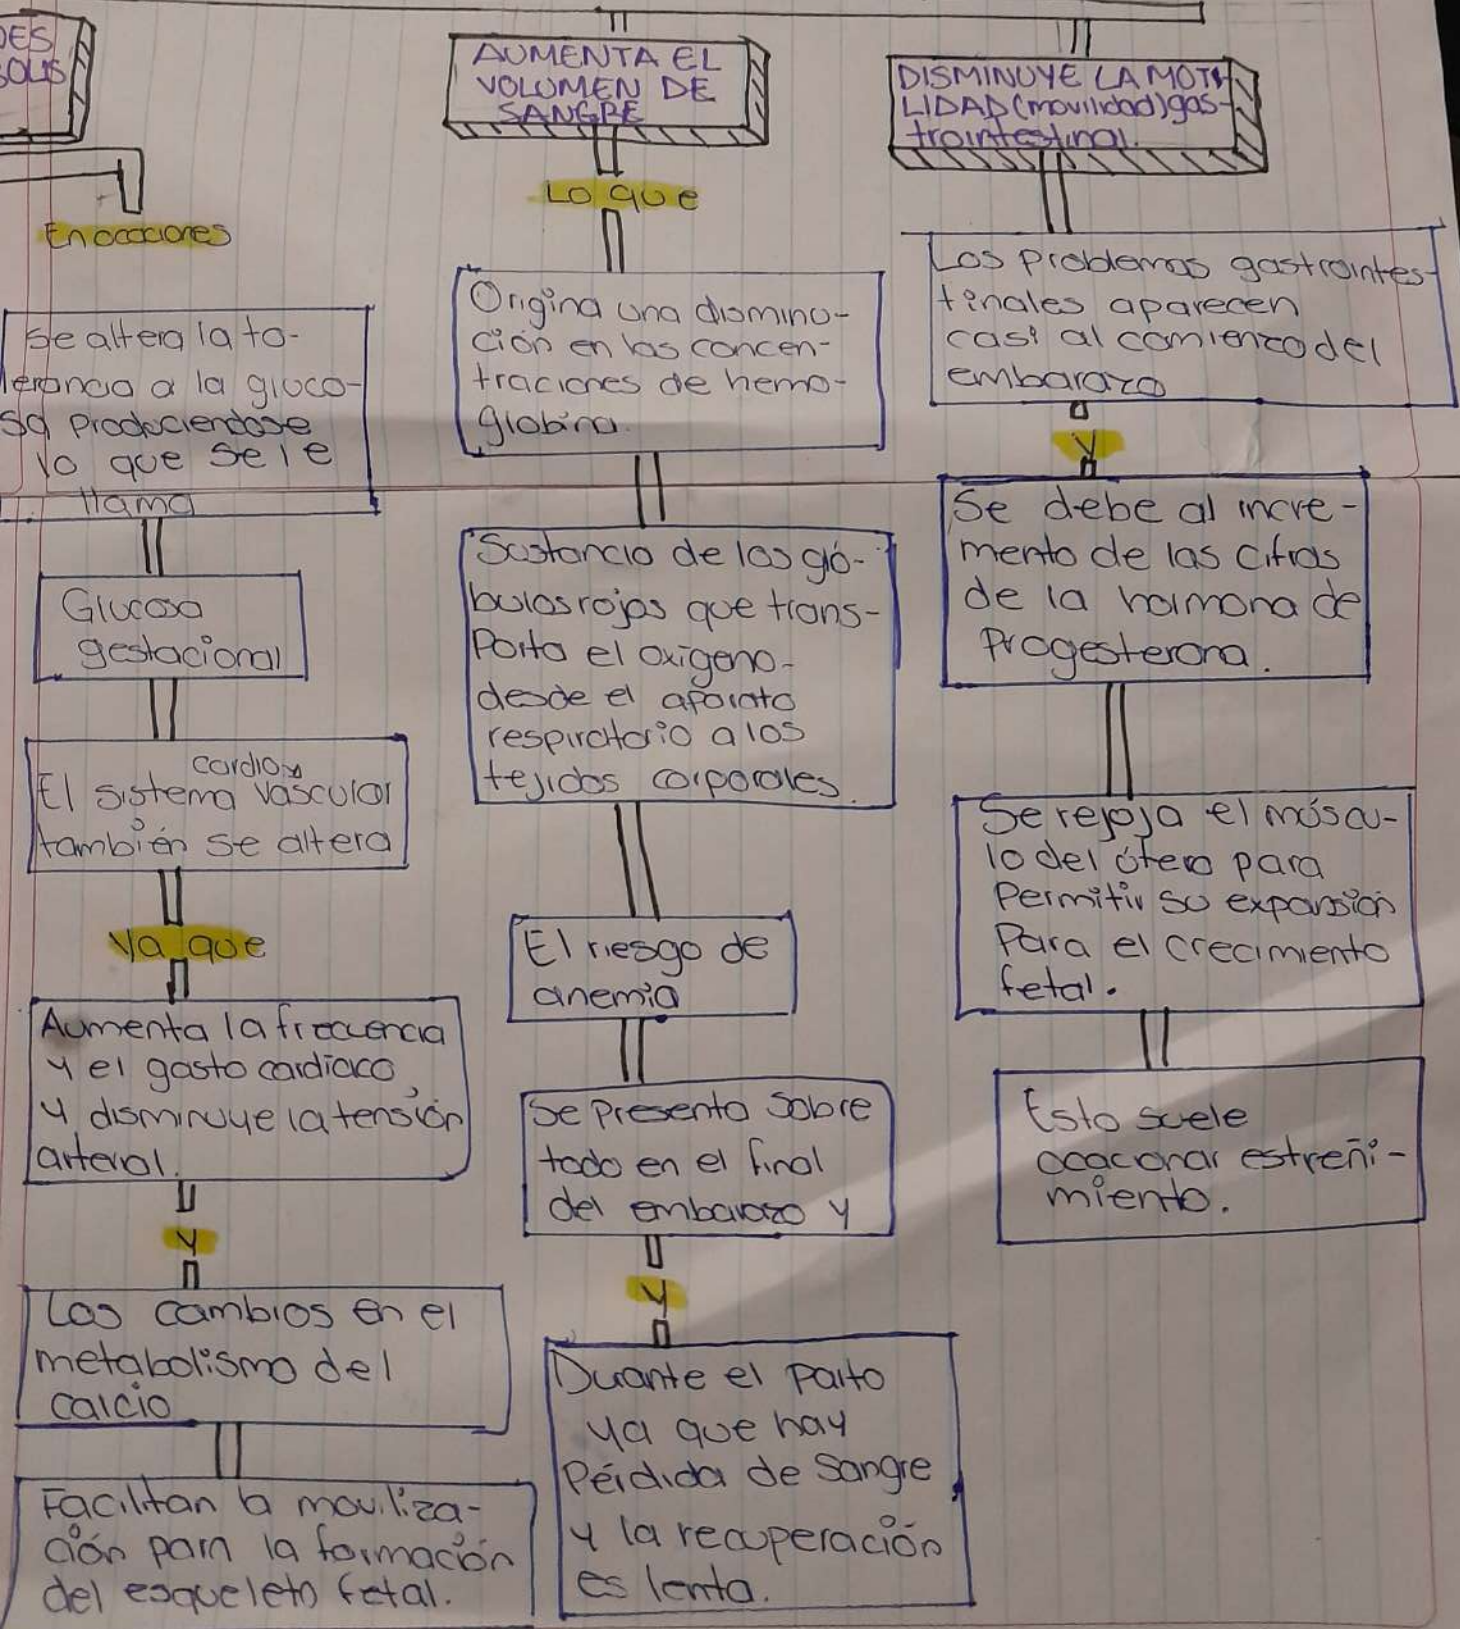 DES
SOLIS
En ocaciones
Se altera la to-
lerancia a la gluco-
sa produciendose
lo que se le
llama
Glucosa
gestacional
cardio
El sistema vascular
también se altera
Ya que
Aumenta la frecuencia
y el gasto cardiaco,
y disminuye la tensión
arterial.
y
Los cambios en el
metabolismo del
calcio
Facilitan la moviliza-
ción para la formación
del esqueleto fetal.
AUMENTA EL
VOLUMEN DE
SANGRE
Lo que
Origina una disminu-
ción en las concen-
traciones de hemo-
globina.
Sustancia de los gló-
bulos rojos que trans-
Porta el oxigeno
desde el aparato
respiratorio a los
tejidos corporales.
El riesgo de
anemia
Se presenta sobre
todo en el final
del embarazo y
y
Durante el parto
ya que hay
Pérdida de sangre
y la recuperación
es lenta.
DISMINUYE LA MOTI-
LIDAD (movilidad) gas-
trointestinal.
Los problemas gastrointes-
tinales aparecen
casi al comienzo del
embarazo
y
Se debe al incre-
mento de las cifras
de la hormona de
Progesterona.
Se relaja el múscu-
lo del útero para
Permitir su expansión
Para el crecimiento
fetal.
Esto suele
ocacionar estreñi-
miento.